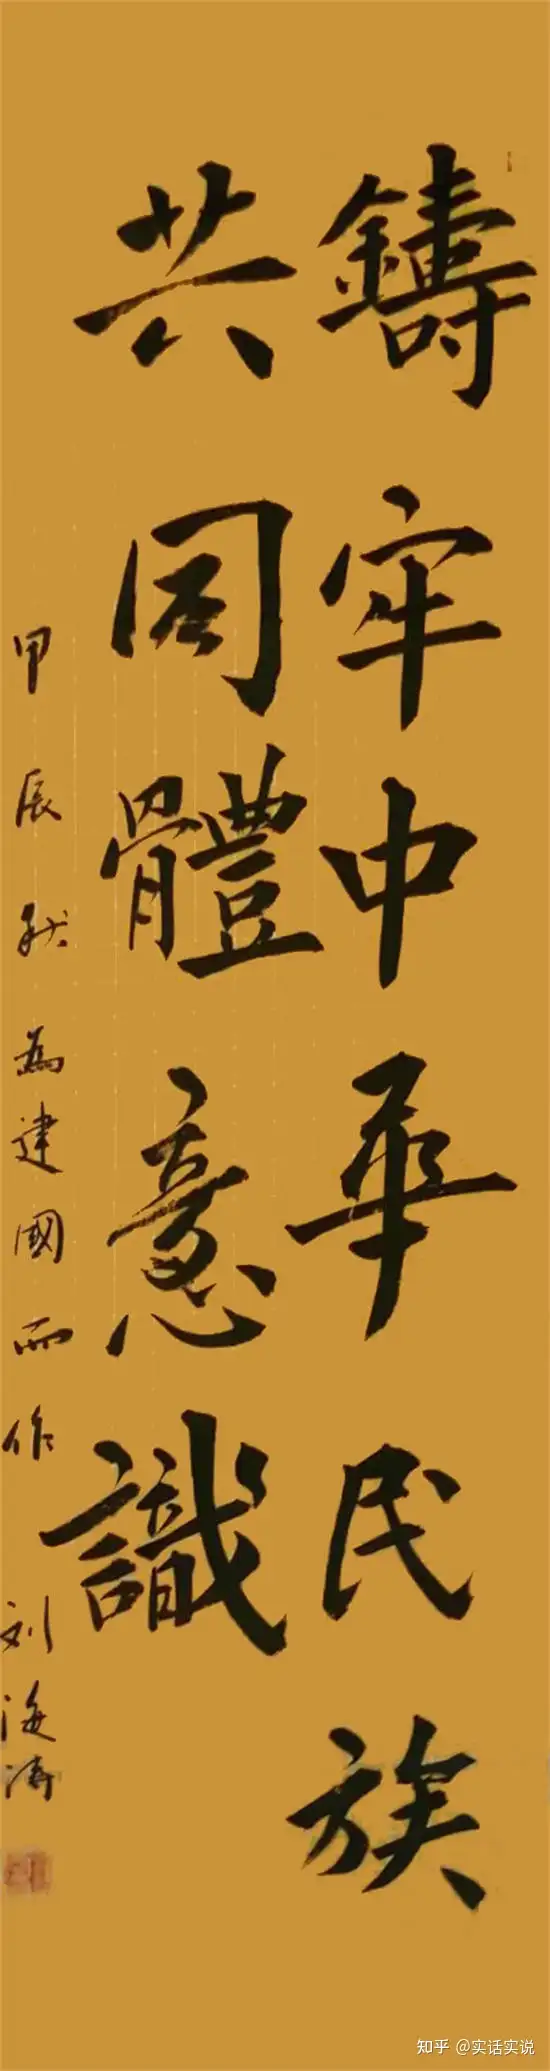 鑄牢中華民族
共同體意識
甲辰秋為建國而作
刘海涛
知乎 @实话实说